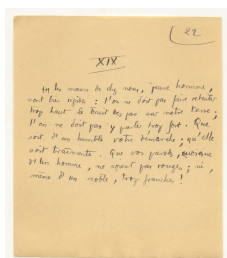 22
XIX
Les mœurs de chez nous, jeune homme,
sont très rigides : l'on ne doit pas faire retentir
trop haut le bruit des pas sur notre terre ;
l'on ne doit pas y parler trop fort. Que
soit d'un humble votre démarche, qu'elle
soit traînante. Que vos paroles, quoique
d'un homme, ne soient pas rouges ; ni,
même d'un noble, trop franches !